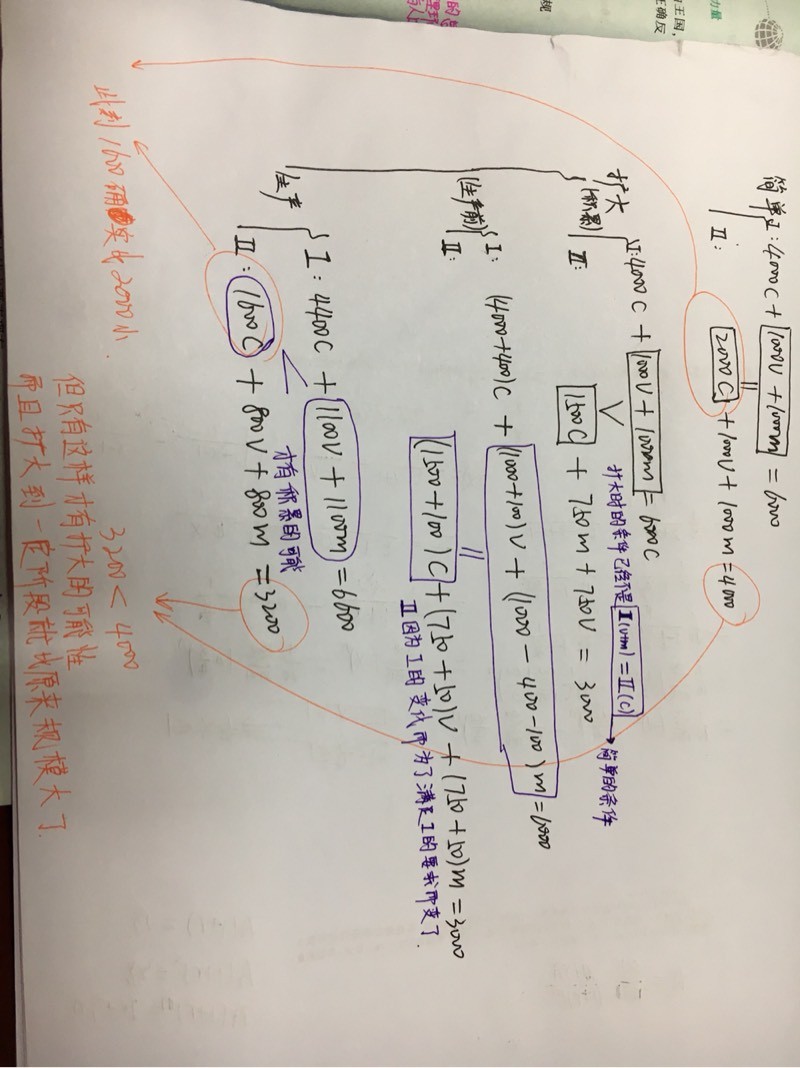 力量
简单 I: 4000C + 1000V + 1000m = 6000
||
II: 2000C + 1000V + 1000m = 4000
扩大
(积累)
I: 4000C + 1000V + 1000m = 6000C
扩大时的条件已经不是 I(v+m) = II(c)
简单的条件
V
II: 1500C + 750m + 750V = 3000
(生产前)
I: (4000+400)C + (1000+100)V + (1000-400-100)m = 6000
||
II: (1500+100)C + (750+50)V + (750+50)m = 3000
II因为I的变化而为了满足I的要求而变了.
生产
I: 4400C + 1100V + 1100m = 6600
才有积累的可能
II: 1600C + 800V + 800m = 3200
此刻1600确实比2000小.
3200 < 4000
但只有这样才有扩大的可能性
而且扩大到一定阶段就比原来规模大了.